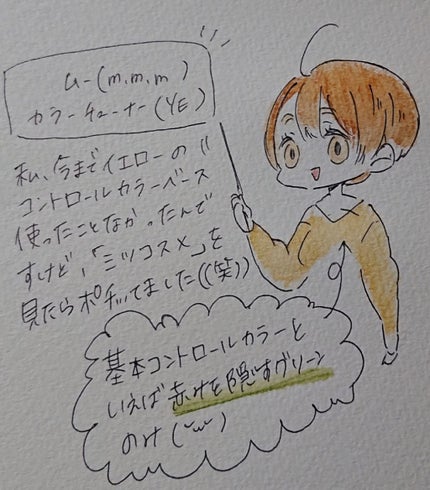 ムー(m.m.m)
カラーチューナー(YE)
私、今までイエローの
コントロールカラーベース
使ったことなかったんで
すけど、「ミツコスメ」を
見たらポチッてました((笑))
基本コントロールカラーと
いえば赤みを隠すグリーン
のけ(˘ω˘)